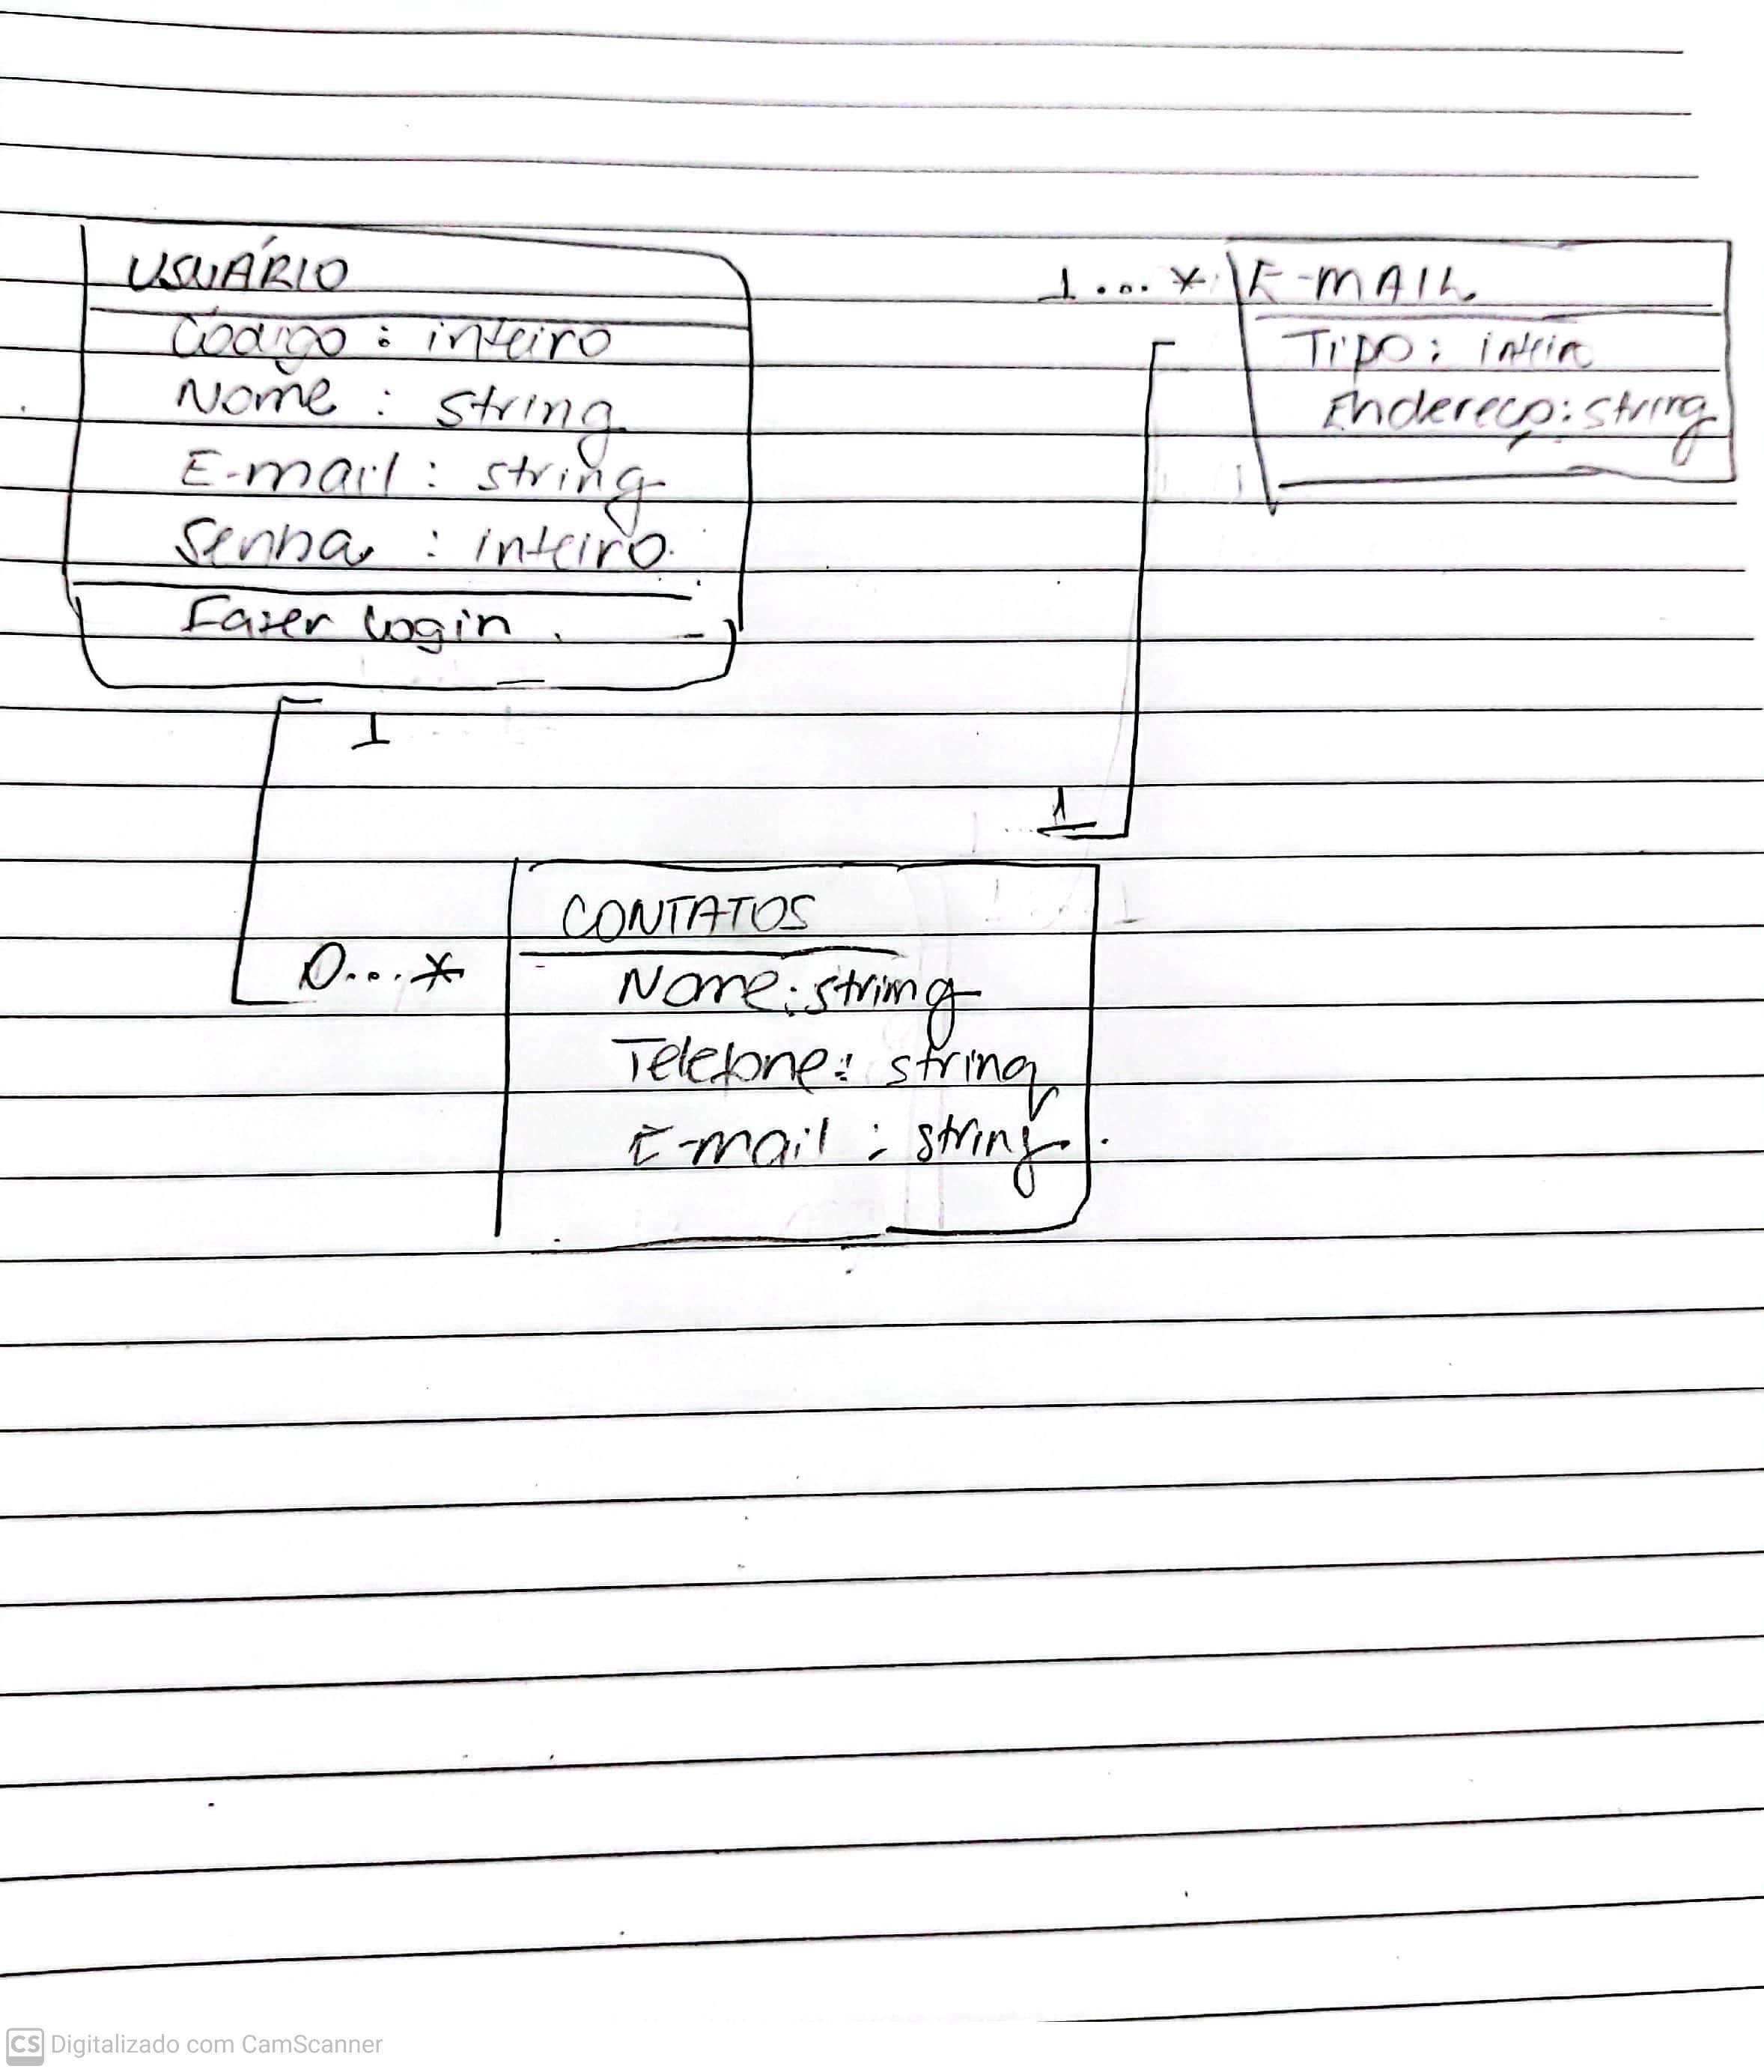 USUÁRIO
Código : inteiro
Nome : string
E-mail : string
Senha : inteiro.
Fazer login.
1
1...* E-MAIL
Tipo : inteiro
Endereço : string
1
0...*
CONTATOS
Nome : string
Telefone : string
E-mail : string.
CS Digitalizado com CamScanner